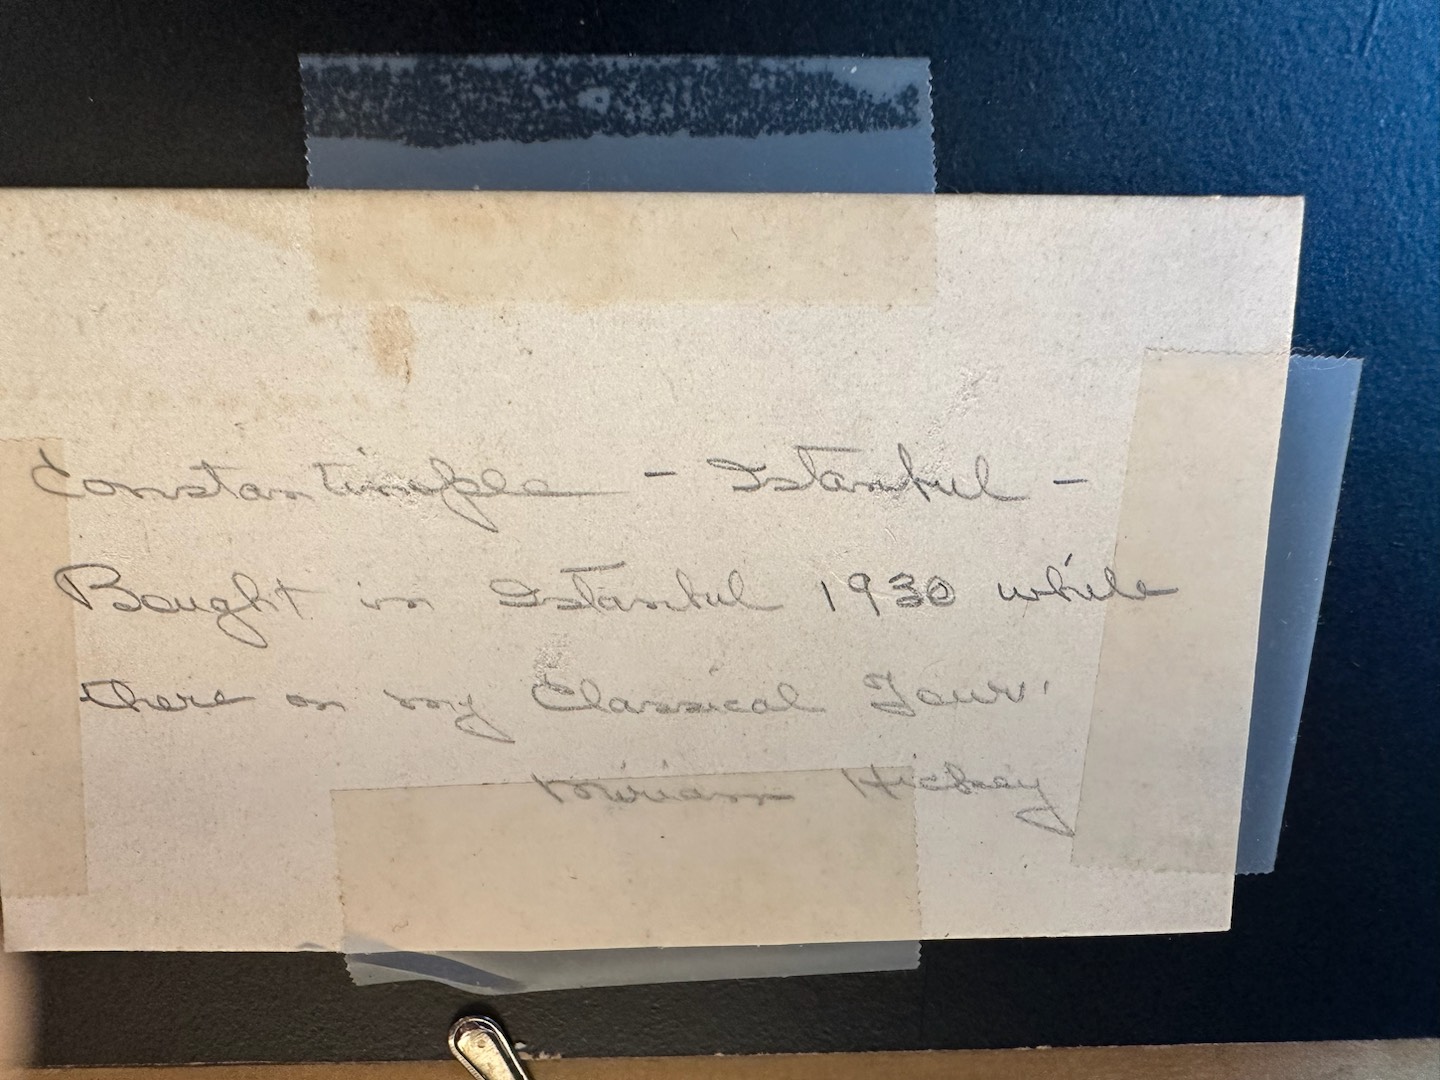 Constantinople - Istanbul -
Bought in Istanbul 1930 while
there on my Classical Tour.
Miriam Hickey